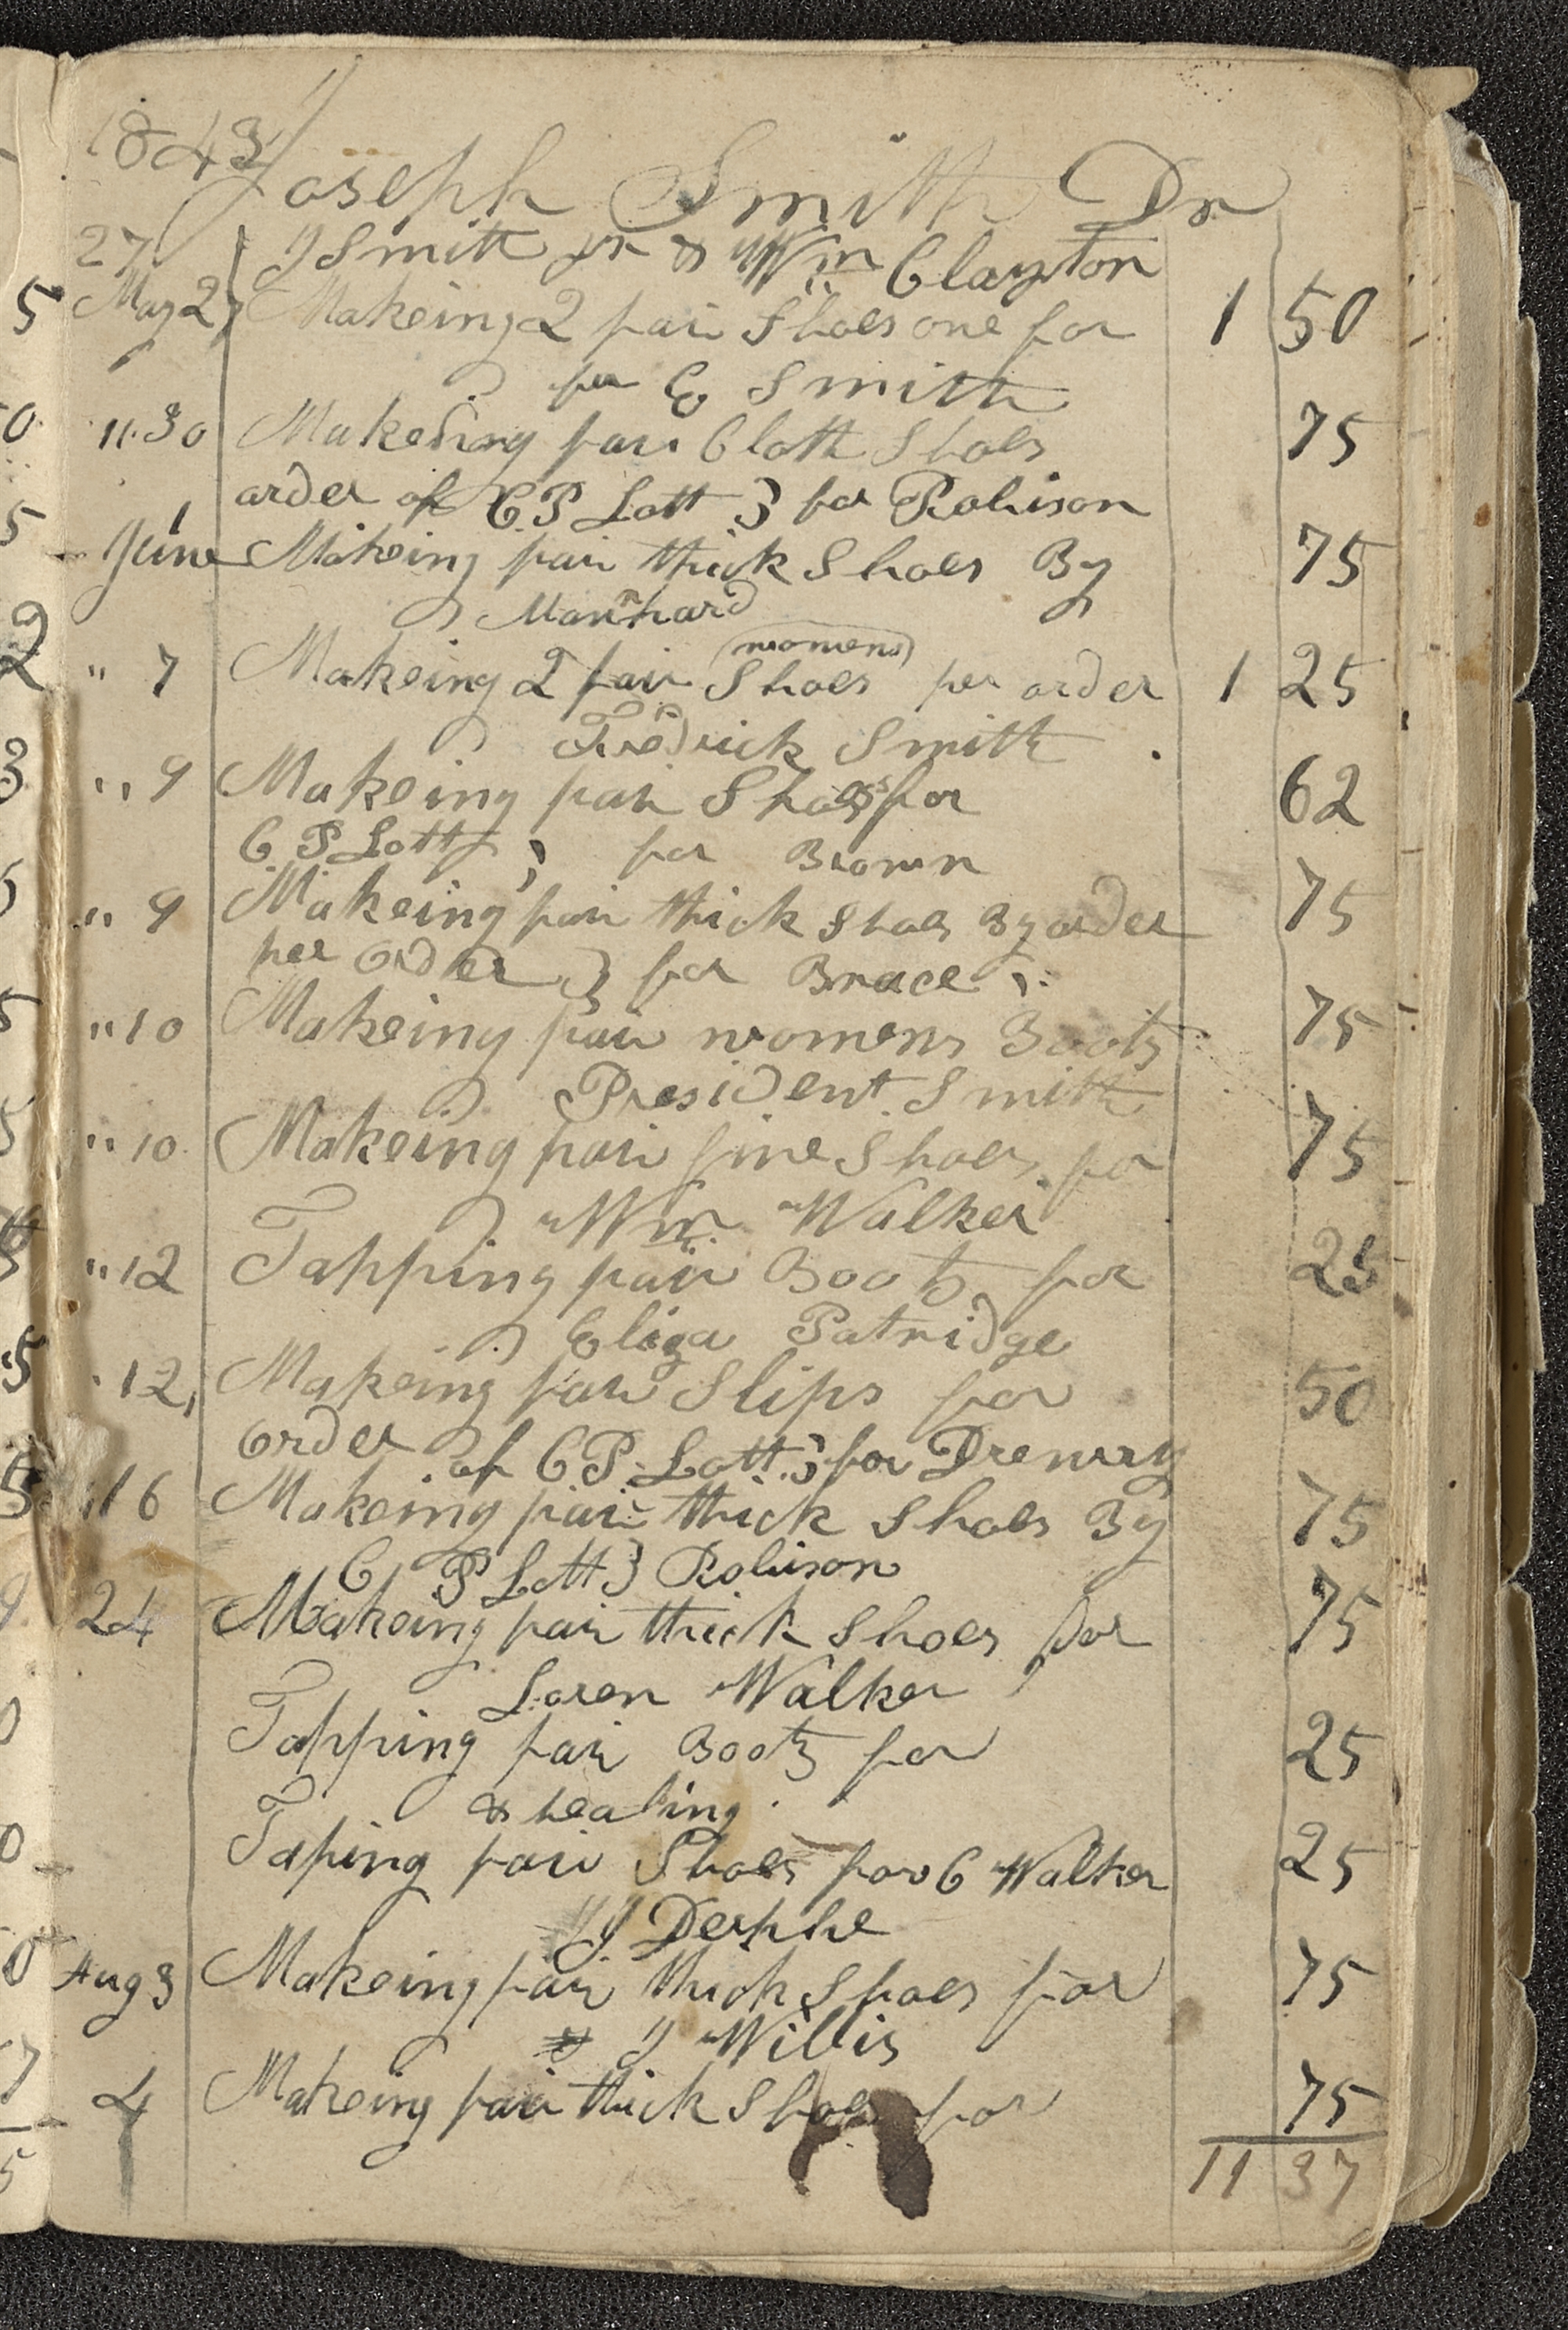 1843
Joseph Smith Dr
27 J Smith jr & Wm Clayton
May 27 Makeing 2 pair Shoes one for 1 50
per E Smith
"30 Makeing pair Cloth Shoes 75
order of C P Lott } for Robison
June 1 Makeing pair thick Shoes By 75
Marinhard
" 7 Makeing 2 pair (womens) Shoes per order 1 25
Fredrick Smith
" 9 Makeing pair Shoes for 62
C P Lott } for Brown
" 9 Makeing pair thick Shoes By order 75
per order } for Brace
" 10 Makeing pair womens Boots 75
President Smith
" 10 Makeing pair fine Shoes for 75
Wm Walker
" 12 Tapping pair Boots for 25
Eliza Patridge
" 12 Makeing pair Slips for 50
order of C P Lott } for Drewry
" 16 Makeing pair thick Shoes By 75
C P Lott } Robison
24 Makeing pair thick Shoes for 75
Loren Walker
Tapping pair Boots for 25
& healing
Taping pair Shoes for C Walker 25
J Derphe
Aug 3 Makeing pair thick Shoes for 75
J Willis
4 Makeing pair thick Shoes for 75
11 37